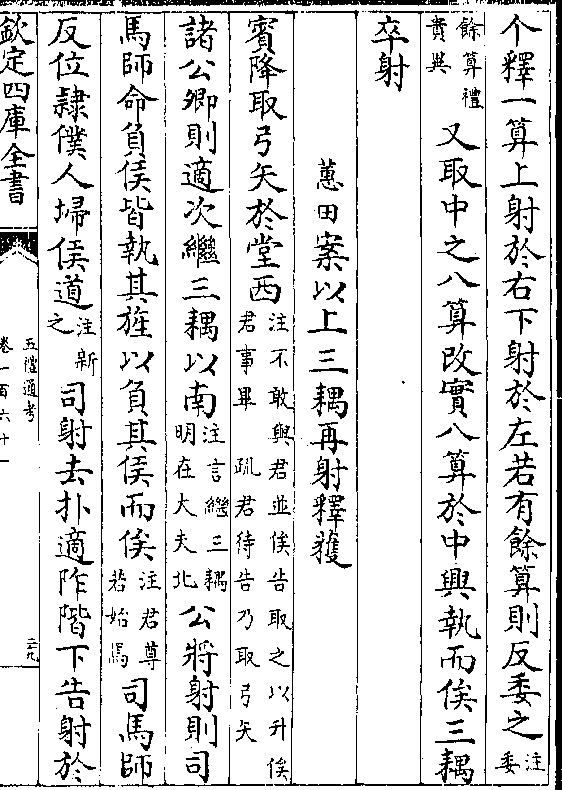 个釋一算上射於右下射於左若有餘算則反委之注委
餘算禮貴異又取中之八算改實八算於中興執而俟三耦
卒射
蕙田案以上三耦再射釋獲
賓降取弓矢於堂西注不敢與君並俟告取之以升俟君事畢 疏君待告乃取弓矢
諸公卿則適次繼三耦以南注言繼三耦明在大夫北公將射則司
馬師命負侯皆執其旌以負其侯而俟注君尊若始焉司馬師
反位隸僕人埽侯道注新之司射去扑適阼階下告射於
欽定四庫全書
五禮通考
卷一百六十一
二九